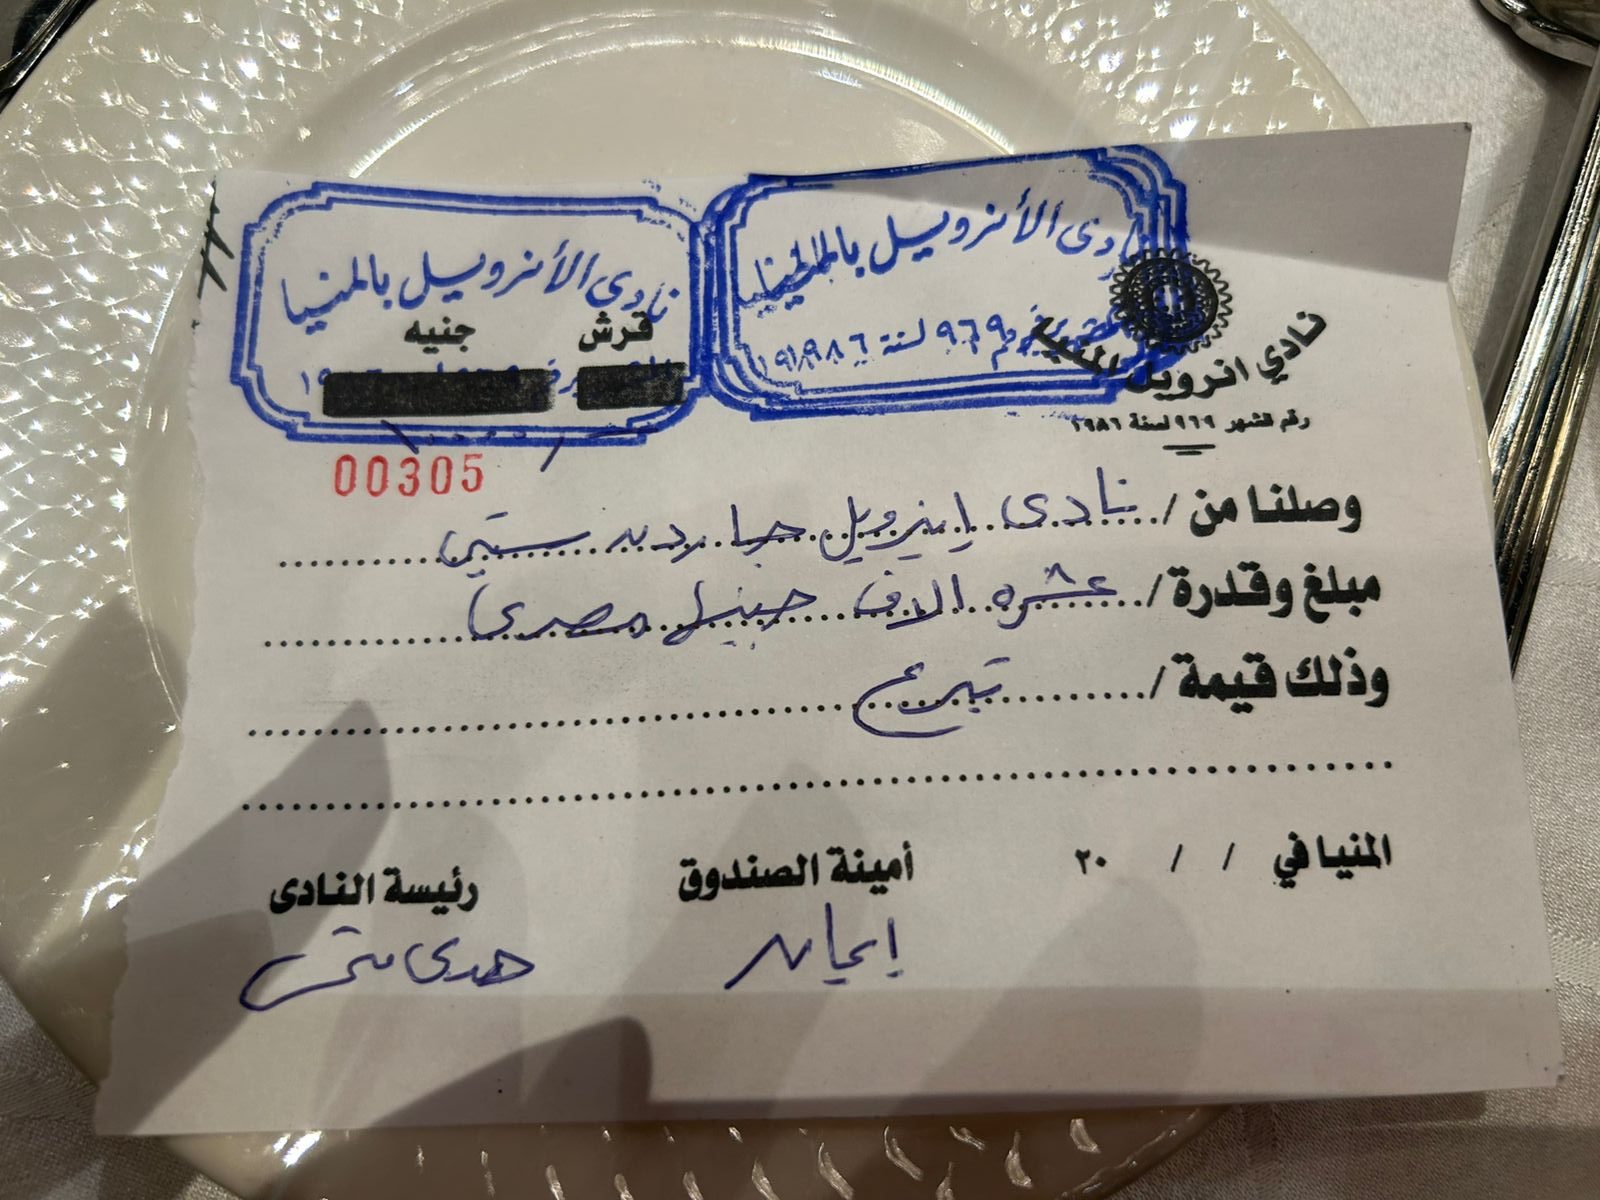 نادى الأنرويل بالمنيا
نادى الأنرويل بالمنيا
٩٦٩ لسنة ١٩٨٦
قرش جنيه
نادي انرويل المنيا
رقم الشهر ٩٦٩ لسنة ١٩٨٦
١٠٠٠٠/
00305
وصلنا من / نادى إينرويل جاردن سيتى
مبلغ وقدرة / عشره الاف جنيها مصرى
وذلك قيمة / تبرع
المنيا في / / ٢٠
أمينة الصندوق رئيسة النادى
إيمان هدى